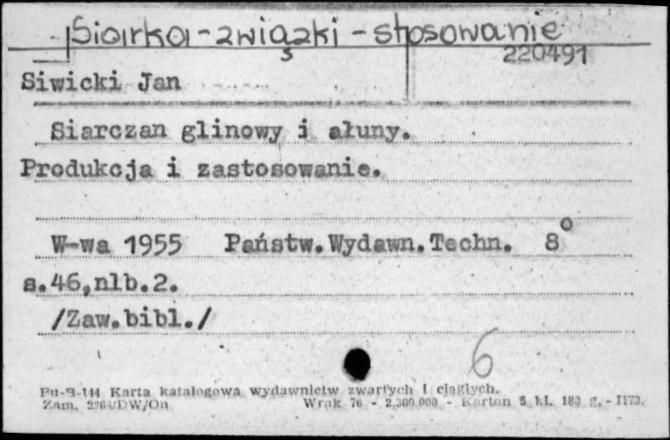 Siarka - związki - stosowanie
220491
Siwicki Jan
Siarczan glinowy i ałuny.
Produkcja i zastosowanie.
W-wa 1955 Państw.Wydawn.Techn. 8°
s.46,nlb.2.
/Zaw.bibl./
6
Pu-B-144 Karta katalogowa wydawnictw zwartych i ciągłych.
Zam. DW/On Wrak 76 - 2,300.000 - Karton 5 kl. 180 g. - I173.